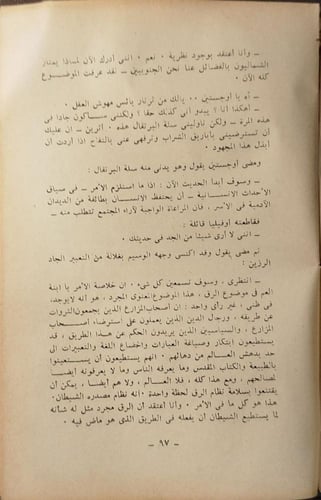 ـ وأنا أعتقد بوجود نظرية ٠ نعم ٠ اننى أدرك الآن لماذا يمتاز
الشماليون بالفضائل عنا نحن الجنوبيين ـ لقد عرفت الموضــوع
كله الآن ٠
ـ آه يا أوجستين ٠٠ يالك من ثرثار بائس مهوش العقل ٠
ـ أهكذا أنا ؟ يبدو أنى كذلك حقا ؟ ولكننى ســأكون جادا فى
هذه المرة ـ ولكن ناولينى سلة البرتقال هذه ٠ أترين ـ ان عليك
أن تسترضينى بأباريق الشراب وترفهى عنى بالتفاح اذا أردت أن
أبذل هذا المجهود ٠
ومضى أوجستين يقول وهو يدنى منه سلة البرتقال :
ـ وسوف أبدأ الحديث الآن : اذا ما استلزم الأمر ـ فى سياق
الأحداث الانســانية ـ أن يحتفظ الانســان بطائفة من الديدان
الآدمية فى الأسر ، فان المراعاة الواجبة لآراء المجتمع تتطلب منه ـ
فقاطعته أوفيليا قائلة :
ـ اننى لا أرى شيئا من الجد فى حديثك ٠
ثم مضى يقول وقد اكتسى وجهه الوسيم بغلالة من التعبير الجاد
الرزين :
ـ انتظرى ، وسوف تسمعين كل شىء ٠ ان خلاصة الأمر يا ابنة
العم فى موضوع الرق ، هذا الموضوع المعنوى المجرد ، هو أنه لايوجد،
فى ظنى ، غير رأى واحد : ان أصحاب المزارع الذين يجمعون الثروات
عن طريقه ، ورجال الدين الذين يعملون على استرضاء أصــحاب
المزارع ، والسياسيين الذين يريدون الحكم عن هــذا الطريق ، قد
يستطيعون ابتكار وصياغة العبارات واخضاع اللغة والتعبيرات الى
حد يدهش العــالم من دهائهم ٠ انهم يستطيعون أن يســتعينوا
بالطبيعة والكتاب المقدس وما يعرفه الناس وما لا يعرفونه أيضــا
لمصالحهم ، ومع هذا كله ، فلا العــالم ، ولا هم أيضــا ، يمكن أن
يقتنعوا بسلامة نظام الرق لحظة واحدة ٠ انه نظام مصدره الشيطان٠
هذا هو كل ما فى الأمر ٠ وأنا أعتقد أن الرق مجرد مثل له شأنه
لما يستطيع الشيطان أن يفعله فى الطريق الذى هو ماض فيه ٠
ـ ٩٧ ـ